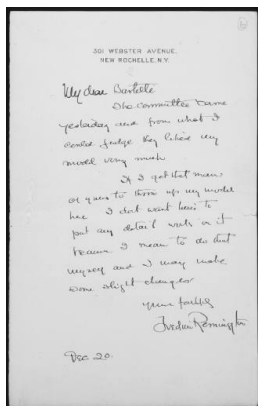 301 WEBSTER AVENUE,
NEW ROCHELLE, N.Y.
My dear Bartelle
The committee came
yesterday and from what I
could judge they liked my
model very much.
If I get that man
or yours to throw up my model
here I dont want him to
put any detail work on it
because I mean to do that
myself and I may make
some slight changes
yours faithfully
Frederic Remington
Dec 20.